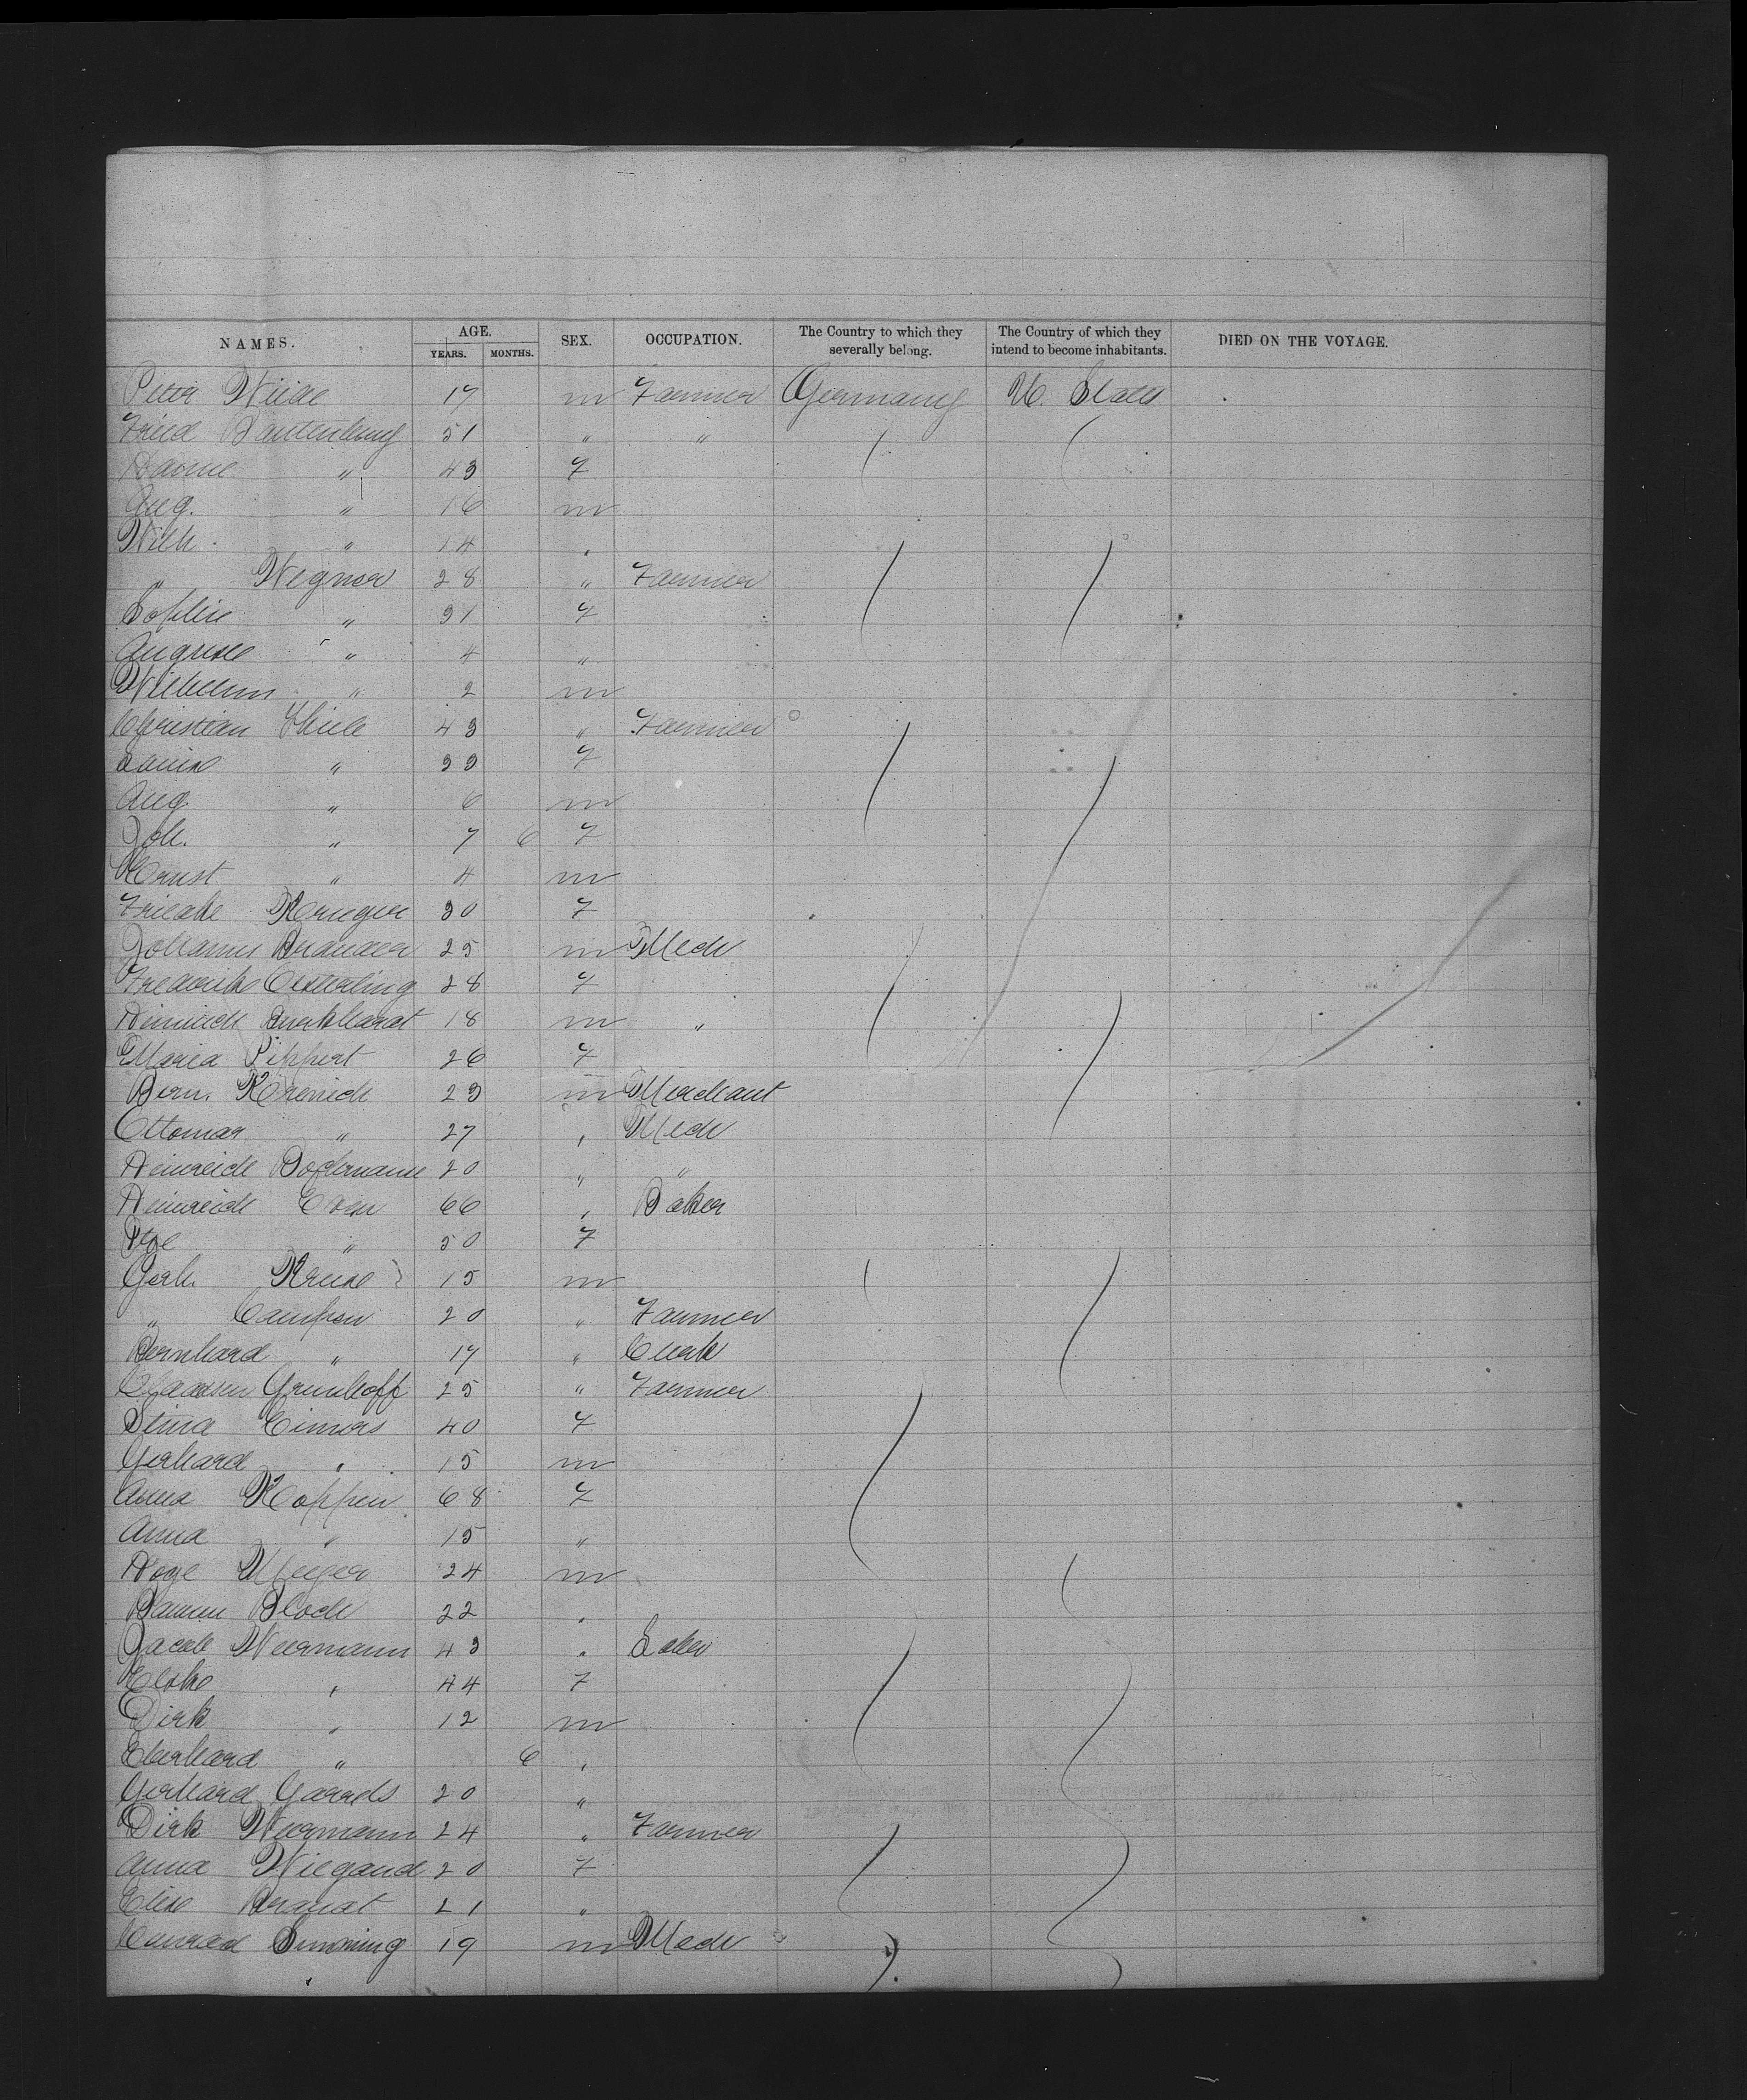 NAMES. AGE. SEX. OCCUPATION. The Country to which they severally belong. The Country of which they intend to become inhabitants. DIED ON THE VOYAGE.
YEARS. MONTHS.
Peter 17 m Farmer Germany U. States
Fried 51 " "
" 43 F
Aug. " 16 m
Wilh. " 14 "
" Wegner 28 " Farmer
Sophie " 31 F
Auguste " 4 "
Wilhelm " 2 m
Christian Thiele 43 " Farmer
Louise " 33 F
Aug. " 6 m
Joh. " 7 6 F
Ernst " 4 m
Friedke Krueger 30 F
Johannes 25 m Mech
Frederike Oesterling 28 F
Heinrich Burkhardt 18 m "
Maria Pippert 26 F
Bern. 23 m Merchant
Ottomar " 27 " Mech
Heinrich 20 " "
Heinrich 66 " Baker
" 50 F
Gerh. Kruse 15 m
" 20 " Farmer
Bernhard " 17 " Clerk
Claassen Grunhoff 25 " Farmer
Stina Eimers 40 F
Gerhard " 15 m
Anna Koppen 68 F
Anna " 15 "
Meyer 24 m
Block 22 "
Jacob Weermann 43 " Labr
Elske " 44 F
Dirk " 12 m
Eberhard " 6 "
Gerhard Garrels 20 "
Dirk Weermann 24 " Farmer
Anna Wiegand 20 F
Elise Brandt 21 "
Conrad 19 m Mech